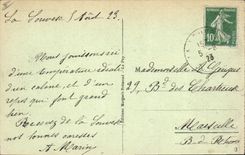 La Louvesc 5 Août 23.
Nous jouissons ici
d'une température idéale
d'un calme et d'un
repos qui font grand
bien.
Recevez de la Louvesc
nos bonnes caresses
A. Marius
10
Mademoiselle M.
29, Bd des Chartreux
Marseille
B. du Rhône